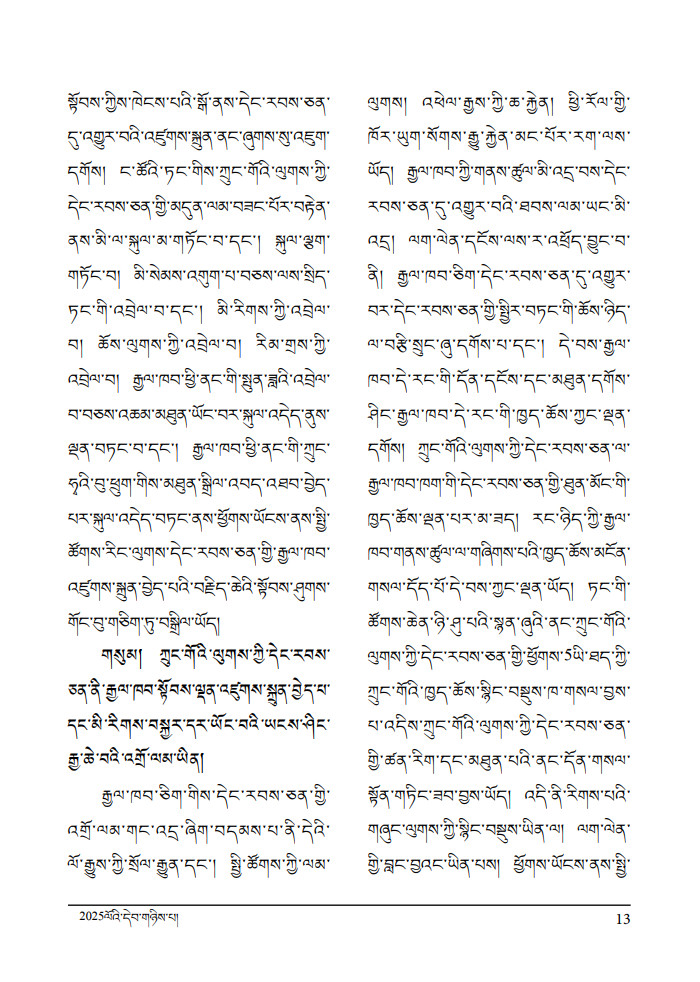 སྟོབས་ཀྱིས་ཁེངས་པའི་སྒོ་ནས་དེང་རབས་ཅན་
དུ་འགྱུར་བའི་འཛུགས་སྐྲུན་ནང་ཞུགས་སུ་འཇུག་
དགོས། ང་ཚོའི་ཏང་གིས་ཀྲུང་གོའི་ལུགས་ཀྱི་
དེང་རབས་ཅན་གྱི་མདུན་ལམ་བཟང་པོར་བརྟེན་
ནས་མི་ལ་སྐུལ་མ་གཏོང་བ་དང་། སྐུལ་ལྕག་
གཏོང་བ། མི་སེམས་འགུག་པ་བཅས་ལས་སྲིད་
ཏང་གི་འབྲེལ་བ་དང་། མི་རིགས་ཀྱི་འབྲེལ་
བ། ཆོས་ལུགས་ཀྱི་འབྲེལ་བ། རིམ་གྲས་ཀྱི་
འབྲེལ་བ། རྒྱལ་ཁབ་ཕྱི་ནང་གི་སྤུན་ཟླའི་འབྲེལ་
བ་བཅས་འཆམ་མཐུན་ཡོང་བར་སྐུལ་འདེད་ནུས་
ལྡན་བཏང་བ་དང་། རྒྱལ་ཁབ་ཕྱི་ནང་གི་ཀྲུང་
ཧྭའི་བུ་ཕྲུག་གིས་མཐུན་སྒྲིལ་འབད་འཐབ་བྱེད་
པར་སྐུལ་འདེད་བཏང་ནས་ཕྱོགས་ཡོངས་ནས་སྤྱི་
ཚོགས་རིང་ལུགས་དེང་རབས་ཅན་གྱི་རྒྱལ་ཁབ་
འཛུགས་སྐྲུན་བྱེད་པའི་བརྗིད་ཆེའི་སྟོབས་ཤུགས་
གོང་བུ་གཅིག་ཏུ་བསྒྲིལ་ཡོད།
གསུམ། ཀྲུང་གོའི་ལུགས་ཀྱི་དེང་རབས་
ཅན་ནི་རྒྱལ་ཁབ་སྟོབས་ལྡན་འཛུགས་སྐྲུན་བྱེད་པ་
དང་མི་རིགས་བསྐྱར་དར་ཡོང་བའི་ཡངས་ཤིང་
རྒྱ་ཆེ་བའི་འགྲོ་ལམ་ཡིན།
རྒྱལ་ཁབ་ཅིག་གིས་དེང་རབས་ཅན་གྱི་
འགྲོ་ལམ་གང་འདྲ་ཞིག་བདམས་པ་ནི་དེའི་
ལོ་རྒྱུས་ཀྱི་སྲོལ་རྒྱུན་དང་། སྤྱི་ཚོགས་ཀྱི་ལམ་
ལུགས། འཕེལ་རྒྱས་ཀྱི་ཆ་རྐྱེན། ཕྱི་རོལ་གྱི་
ཁོར་ཡུག་སོགས་རྒྱུ་རྐྱེན་མང་པོར་རག་ལས་
ཡོད། རྒྱལ་ཁབ་ཀྱི་གནས་ཚུལ་མི་འདྲ་བས་དེང་
རབས་ཅན་དུ་འགྱུར་བའི་ཐབས་ལམ་ཡང་མི་
འདྲ། ལག་ལེན་དངོས་ལས་ར་འཕྲོད་བྱུང་བ་
ནི། རྒྱལ་ཁབ་ཅིག་དེང་རབས་ཅན་དུ་འགྱུར་
བར་དེང་རབས་ཅན་གྱི་སྤྱིར་བཏང་གི་ཆོས་ཉིད་
ལ་བརྩི་སྲུང་ཞུ་དགོས་པ་དང་། དེ་བས་རྒྱལ་
ཁབ་དེ་རང་གི་དོན་དངོས་དང་མཐུན་དགོས་
ཤིང་རྒྱལ་ཁབ་དེ་རང་གི་ཁྱད་ཆོས་ཀྱང་ལྡན་
དགོས། ཀྲུང་གོའི་ལུགས་ཀྱི་དེང་རབས་ཅན་ལ་
རྒྱལ་ཁབ་ཁག་གི་དེང་རབས་ཅན་གྱི་ཐུན་མོང་གི་
ཁྱད་ཆོས་ལྡན་པར་མ་ཟད། རང་ཉིད་ཀྱི་རྒྱལ་
ཁབ་གནས་ཚུལ་ལ་གཞིགས་པའི་ཁྱད་ཆོས་མངོན་
གསལ་དོད་པོ་དེ་བས་ཀྱང་ལྡན་ཡོད། ཏང་གི་
ཚོགས་ཆེན་ཉི་ཤུ་པའི་སྙན་ཞུའི་ནང་ཀྲུང་གོའི་
ལུགས་ཀྱི་དེང་རབས་ཅན་གྱི་ཕྱོགས་5ཡི་ཐད་ཀྱི་
ཀྲུང་གོའི་ཁྱད་ཆོས་སྙིང་བསྡུས་ཁ་གསལ་བྱས་
པ་འདིས་ཀྲུང་གོའི་ལུགས་ཀྱི་དེང་རབས་ཅན་
གྱི་ཚན་རིག་དང་མཐུན་པའི་ནང་དོན་གསལ་
སྟོན་གཏིང་ཟབ་བྱས་ཡོད། འདི་ནི་རིགས་པའི་
གཞུང་ལུགས་ཀྱི་སྙིང་བསྡུས་ཡིན་ལ། ལག་ལེན་
གྱི་བླང་བྱའང་ཡིན་པས། ཕྱོགས་ཡོངས་ནས་སྤྱི་
2025ལོའི་དེབ་གཉིས་པ། 13